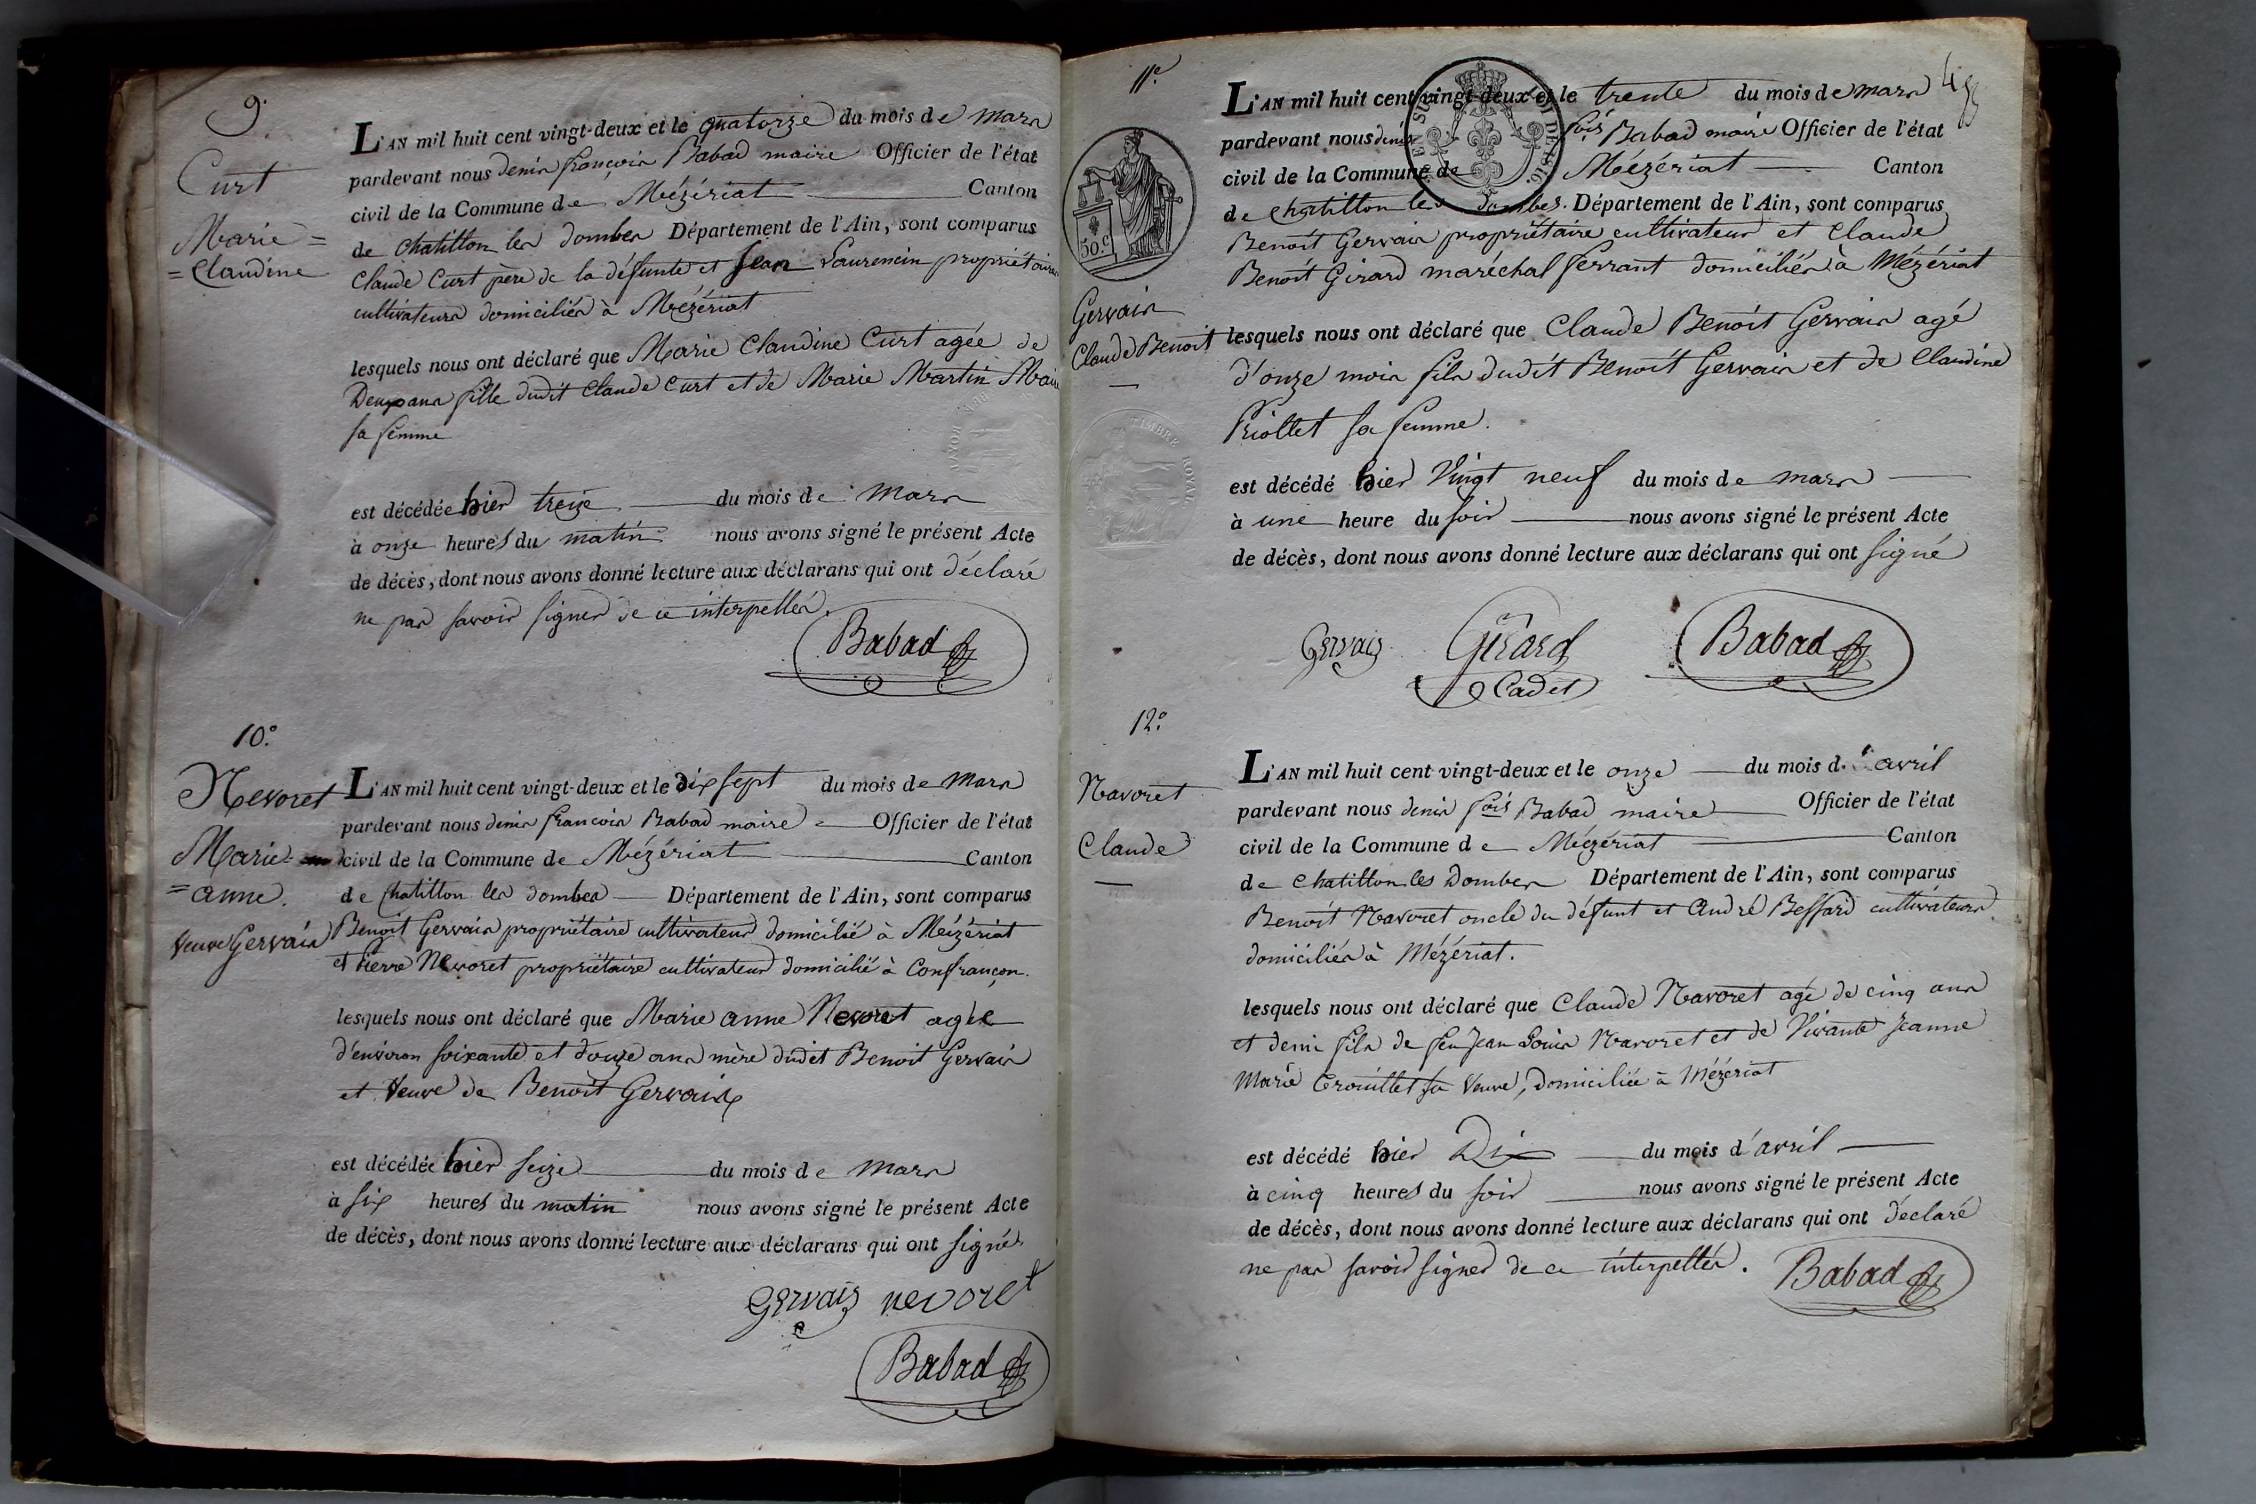 9.
Curt
Marie =
= Claudine
L'AN mil huit cent vingt-deux et le quatorze du mois de mars
pardevant nous denis françois Babad maire Officier de l'état
civil de la Commune de Mézériat Canton
de chatillon les dombes Département de l'Ain, sont comparus
Claude Curt père de la défunte et Jean Laurencin propriétaires
cultivateurs domiciliés à Mézériat
lesquels nous ont déclaré que Marie Claudine Curt agée de
Deux ans fille dudit Claude Curt et de Marie Martin
sa femme
est décédée hier treize du mois de mars
à onze heures du matin nous avons signé le présent Acte
de décès, dont nous avons donné lecture aux déclarans qui ont déclaré
ne pas savoir signer de ce interpellés.
Babad
10.°
Nevoret
Marie =
= anne.
veuve Gervais
L'AN mil huit cent vingt-deux et le dix sept du mois de mars
pardevant nous denis françois Babad maire Officier de l'état
civil de la Commune de Mézériat Canton
de chatillon les dombes Département de l'Ain, sont comparus
Benoit Gervais propriétaire cultivateur domicilié à Mézériat
et Pierre Nevoret propriétaire cultivateur domicilié à Confrançon.
lesquels nous ont déclaré que Marie anne Nevoret agée
d'environ soixante et douze ans mère dudit Benoit Gervais
et veuve de Benoit Gervais
est décédée hier seize du mois de mars
à six heures du matin nous avons signé le présent Acte
de décès, dont nous avons donné lecture aux déclarans qui ont signé
Gervais nevoret
Babad
11.°
50.c
Gervais
Claude Benoit
TIMBRE ROYAL
L'AN mil huit cent vingt-deux et le trente du mois de mars
pardevant nous denis fois Babad maire Officier de l'état
civil de la Commune de Mézériat Canton
de chatillon les dombes. Département de l'Ain, sont comparus
Benoit Gervais propriétaire cultivateur et Claude
Benoit Girard maréchal ferrant domiciliés à Mézériat
lesquels nous ont déclaré que Claude Benoit Gervais agé
d'onze mois fils dudit Benoit Gervais et de Claudine
Priollet sa femme.
est décédé hier vingt neuf du mois de mars
à une heure du soir nous avons signé le présent Acte
de décès, dont nous avons donné lecture aux déclarans qui ont signé
Gervais Girard Babad
Cadet
12.°
Navoret
Claude
L'AN mil huit cent vingt-deux et le onze du mois d'avril
pardevant nous denis fois Babad maire Officier de l'état
civil de la Commune de Mézériat Canton
de chatillon les Dombes Département de l'Ain, sont comparus
Benoit Navoret oncle du défunt et André Beffard cultivateurs
domiciliés à Mézériat.
lesquels nous ont déclaré que Claude Navoret agé de cinq ans
et demi fils de feu Jean Louis Navoret et de vivante Jeanne
Marie Crouillet sa veuve, domiciliée à Mézériat
est décédé hier Dix du mois d'avril
à cinq heures du soir nous avons signé le présent Acte
de décès, dont nous avons donné lecture aux déclarans qui ont déclaré
ne pas savoir signer de ce interpellés.
Babad